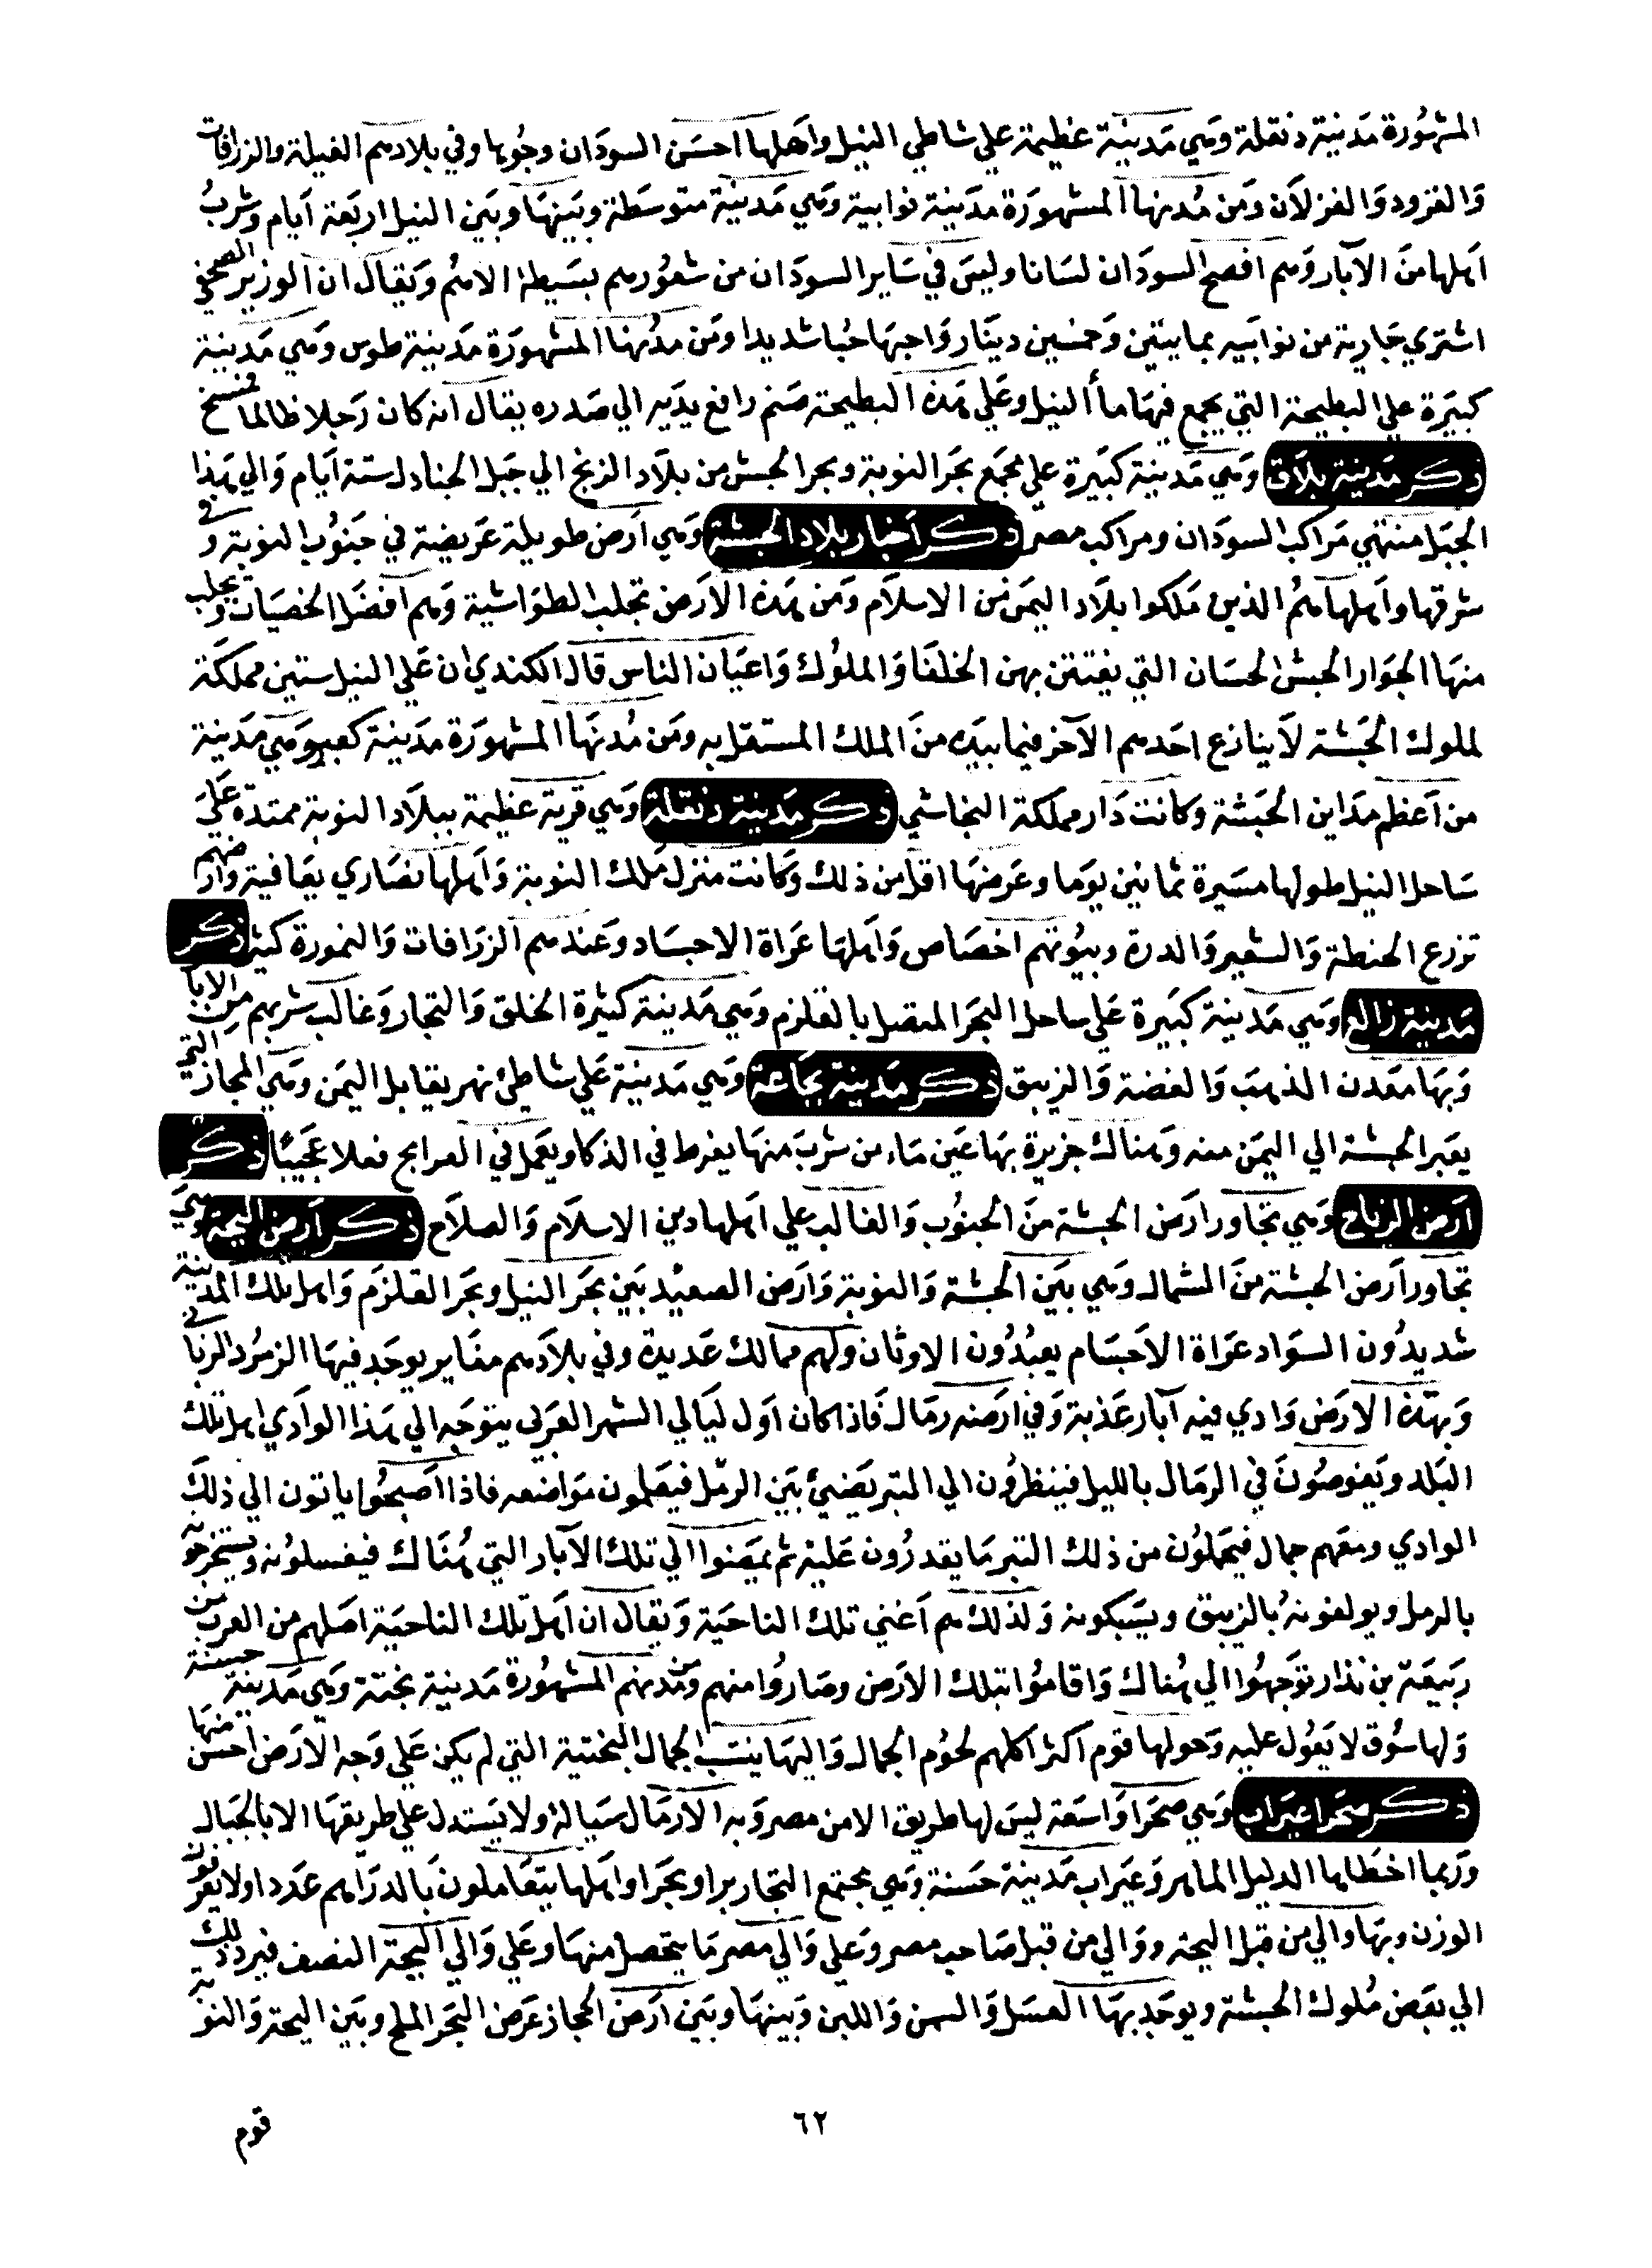 المشهورة مدينة دنقلة وهي مدينة عظيمة علي شاطي النيل واهلها احسن السودان وجوها وفي بلادهم الفيلة والزرافات
والقرود والغزلان ومن مدنها المشهورة مدينة نوابية وهي مدينة متوسطة وبينها وبين النيل اربعة ايام وشرب
اهلها من الآبار وهم افصح السودان لسانا وليس في ساير السودان من شعورهم بسيطة الا هم ويقال ان الوزير المصحفي
اشتري جارية من نوابيه بمايتين وخمسين دينار واحبها حبا شديدا ومن مدنها المشهورة مدينة طوس وهي مدينة
كبيرة علي البطيحة التي يجمع فيها مأ النيل وعلي هذه البطيحة صنم رافع يديه الي صدره يقال انه كان رجلا ظالما فمسخ
ذكر مدينة بلاق وهي مدينة كبيرة علي مجمع بحر النوبة وبحر الحبش من بلاد الزنج الي جبل الجنادل ستة ايام والي هذا
الجبل منتهي مراكب السودان ومراكب مصر ذكر اخبار بلاد الحبشة وهي ارض طويلة عريضة في جنوب النوبة وفي
شرقها واهلها هم الذين ملكوا بلاد اليمن من الاسلام ومن هذه الارض تجلب الطواشية وهم افضل الخصيات ويجلب
منها الجوار الحبش الحسان التي يفتتن بهن الخلفا والملوك واعيان الناس قال الكندي ان علي النيل ستين مملكة
لملوك الحبشة لا ينازع احدهم الآخر فيما بيده من الملك المستقل به ومن مدنها المشهورة مدينة كعبر وهي مدينة
من اعظم مداين الحبشة وكانت دار مملكة النجاشي ذكر مدينة دنقلة وهي قرية عظيمة ببلاد النوبة ممتدة علي
ساحل النيل طولها مسيرة ثمانين يوما وعرضها اقل من ذلك وكانت منزل ملك النوبة واهلها نصاري يعاقبة وارضهم
تزرع الحنطة والشعير والدرة وبيوتهم اخصاص واهلها عراة الاجساد وعندهم الزرافات والنمورة كثير ذكر
مدينة زالع وهي مدينة كبيرة علي ساحل البحر المتصل بالقلزم وهي مدينة كثيرة الخلق والتجار وغالب شربهم من الابا
وبها معدن الذهب والفضة والزيبق ذكر مدينة وهي مدينة علي شاطئ نهر يقابل اليمن وهي المجاز التي
يعبر الحبشة الي اليمن منه وهناك جزيرة بها عين ماء من شرب منها يفرط في الذكا ويعمل في فعلا عجيبا ذكر
ارض الزيلع وهي تجاور ارض الحبشة من الجنوب والغالب علي اهلها دين الاسلام والصلاح ذكر ارض البجة وهي
تجاور ارض الحبشة من الشمال وهي بين الحبشة والنوبة وارض الصعيد بين بحر النيل وبحر القلزم واهل تلك المدينة
شديدون السواد عراة الاجسام يعبدون الاوثان ولهم ممالك عديدة وفي بلادهم مغاير يوجد فيها الزمرد الزبا في
وبهذه الارض وادي فيه آبار عذبة وفي ارضه رمال فاذا كان اول ليالي الشهر العربي يتوجه الي هذا الوادي اهل تلك
البلد ويغوصون في الرمال بالليل فينظرون الي التبر يضيئ بين الرمل فيعلمون مواضعه فاذا اصبحوا ياتون الي ذلك
الوادي ومعهم جمال فيحملون من ذلك التبر ما يقدرون عليه ثم يمضوا الي تلك الآبار التي هناك فيغسلونه ويستخرجونه
بالرمل ويولفونه بالزيبق ويسبكونه ولذلك هم اغني تلك الناحية ويقال ان اهل تلك الناحية اصلهم من العرب من
ربيعة بن نذار توجهوا الي هناك واقاموا بتلك الارض وصاروا منهم ومن مدنهم المشهورة مدينة بختة وهي مدينة حسنة
ولها سوق لا يعول عليه وحولها قوم اكثر اكلهم لحوم الجمال واليها ينتسب الجمال البختية التي لم يكن علي وجه الارض احسن منها
ذكر صحرا عيداب وهي صحرا واسعة ليس لها طريق الا من مصر وبه الارمال سيالة ولا يستدل علي طريقها الا بالجبال
وربما اخطا بها الدليل الماهر وعيراب مدينة حسنة وهي مجتمع التجار برا وبحرا واهلها يتعاملون بالدراهم عددا ولا يعرفون
الوزن وبها والي من قبل البجة ووالي من قبل صاحب مصر وعلي والي مصر ما يتحصل منها وعلي والي البجة النصف فيرد ذلك
الي بعض ملوك الحبشة ويوجد بها العسل والسمن واللبن وبينها وبين ارض الحجاز عرض البحر الملح وبين البجة والنوبة
٦٢
قوم